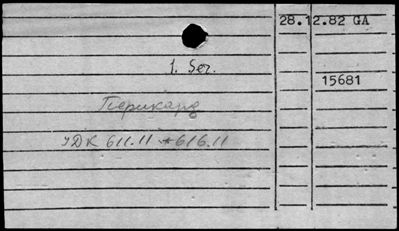 28.12.82 GA
1. Ser.
15681
Перикард
УДК 611.11 * 616.11